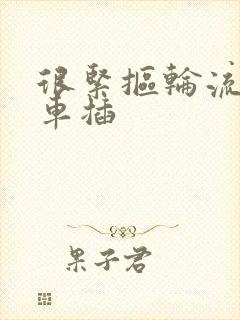 很緊摳輪流
車插
果子君